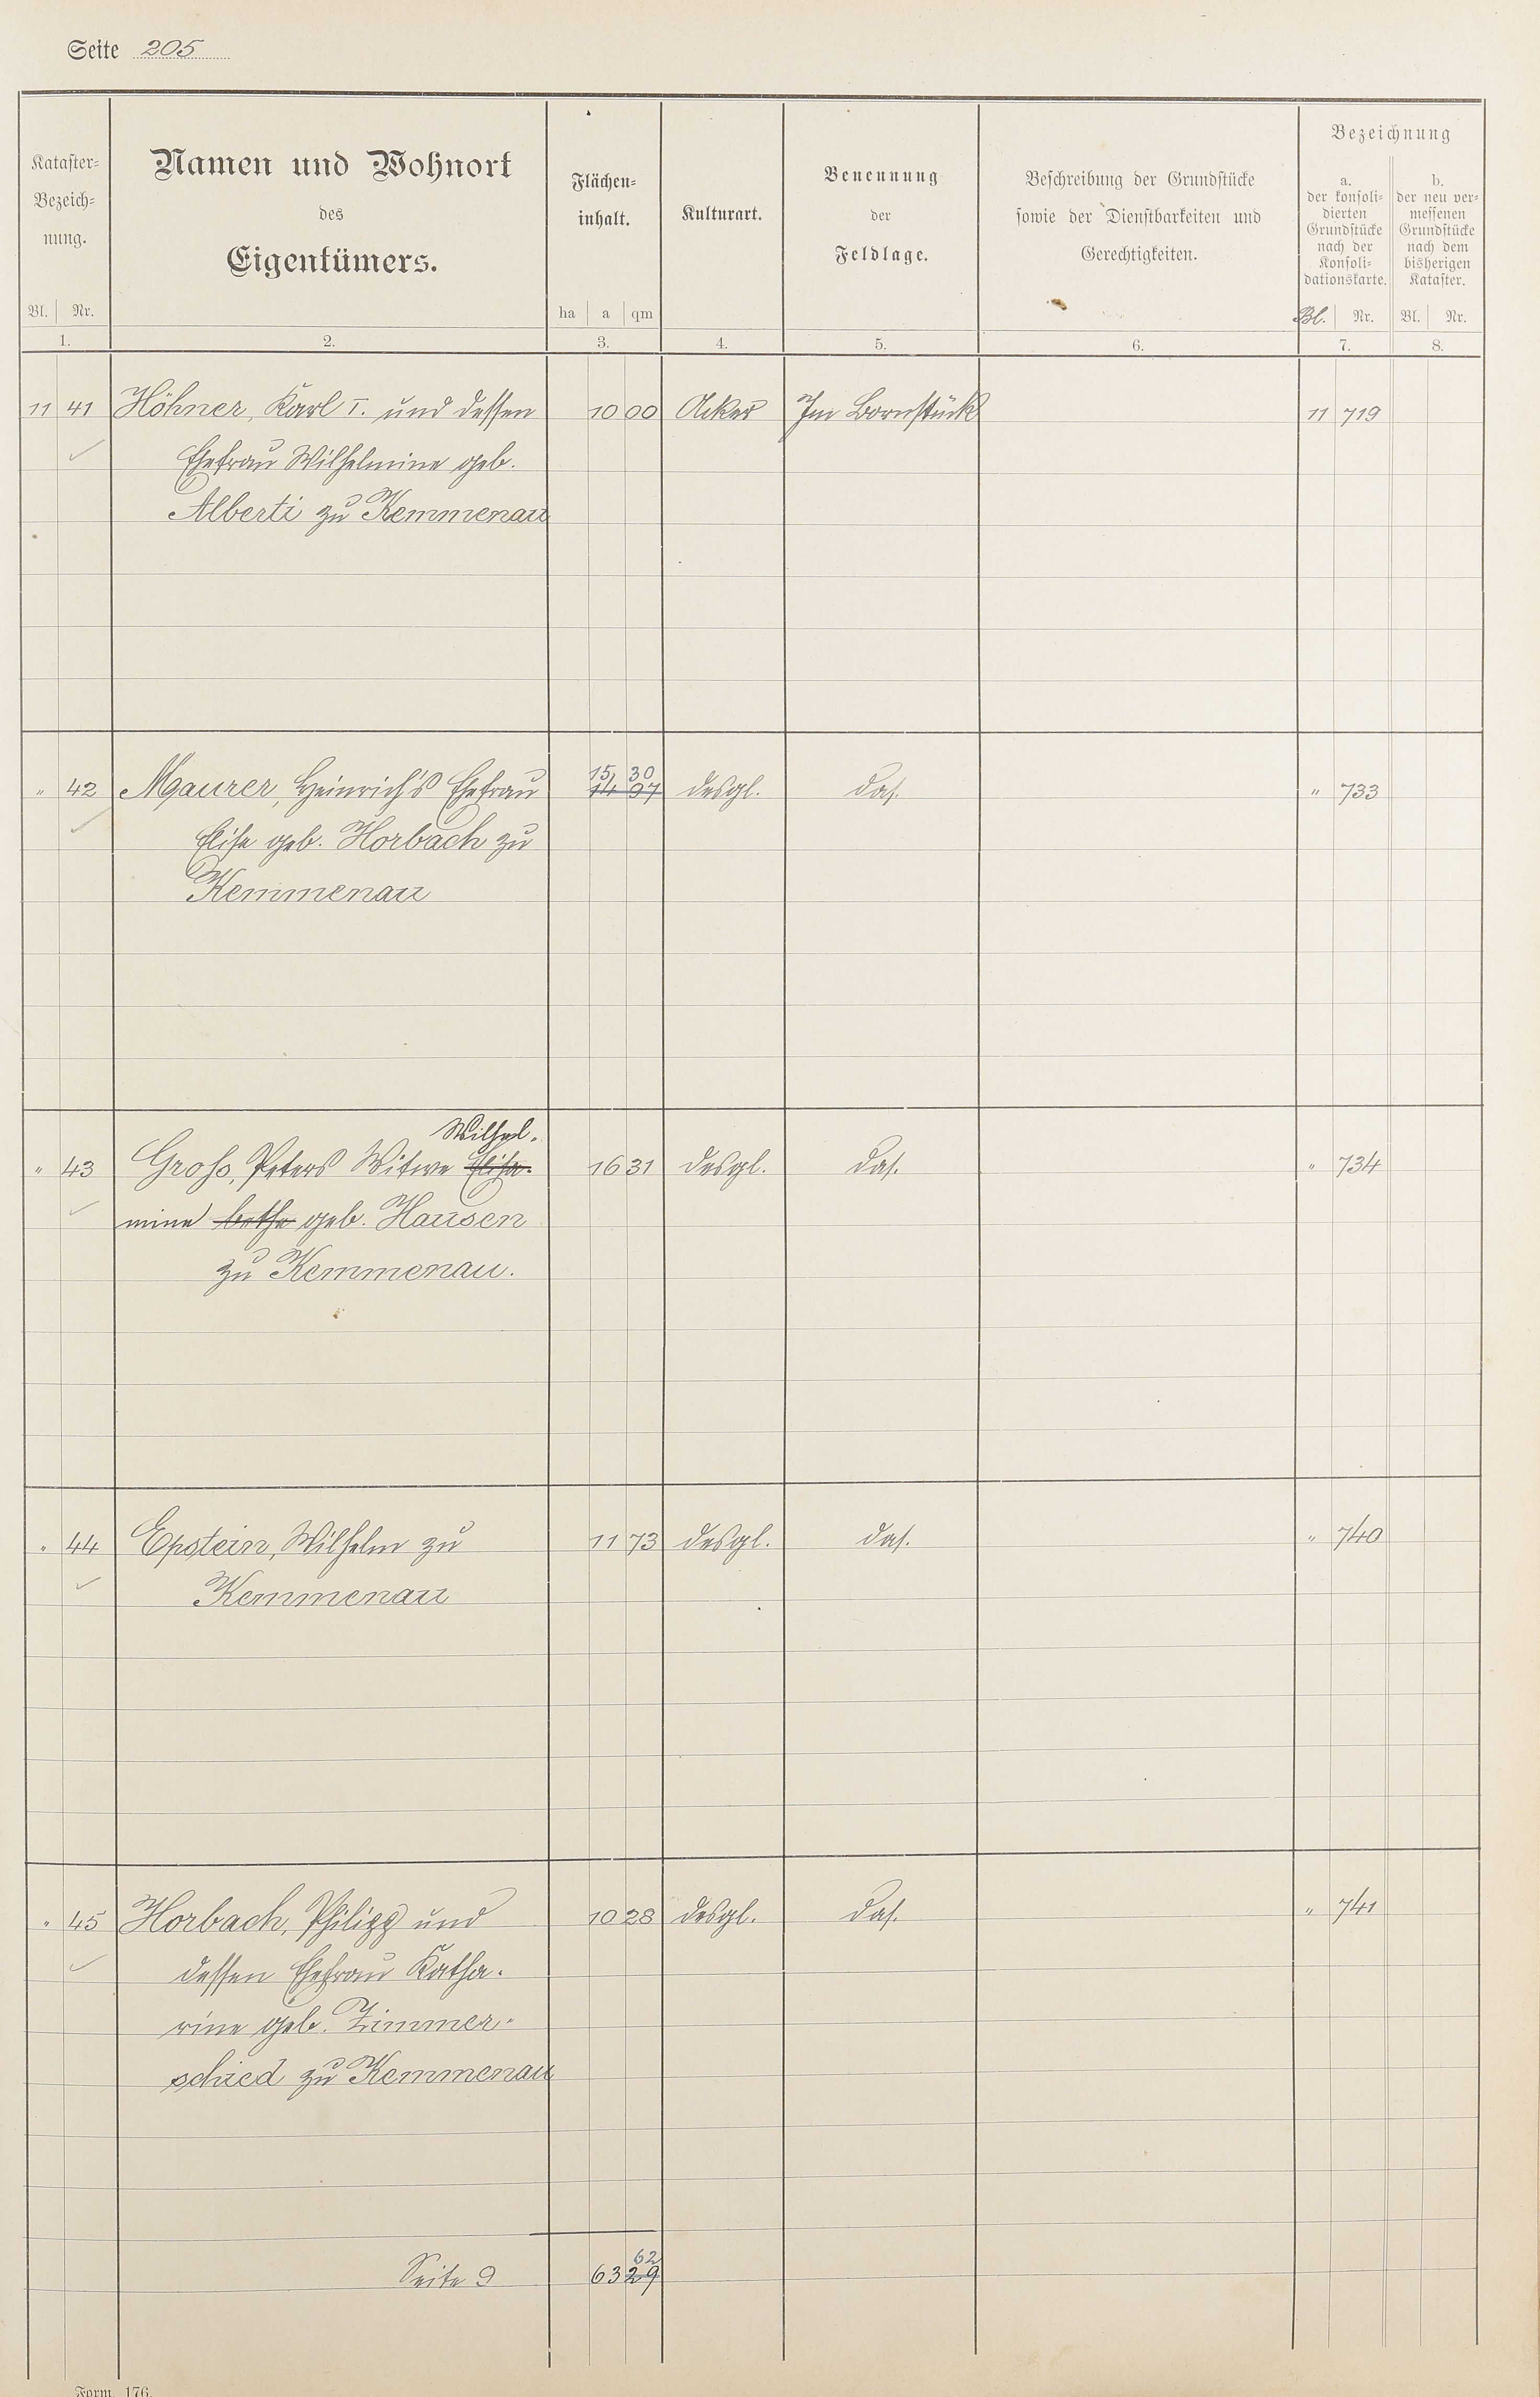 Seite 205
Kataster-
Bezeich-
nung.
Bl. Nr.
1.
Namen und Wohnort
des
Eigentümers.
2.
Flächen-
inhalt.
ha a qm
3.
Kulturart.
4.
Benennung
der
Feldlage.
5.
Beschreibung der Grundstücke
sowie der Dienstbarkeiten und
Gerechtigkeiten.
6.
Bezeichnung
a.
der konsoli-
dierten
Grundstücke
nach der
Konsoli-
dationskarte.
Bl. Nr.
7.
b.
der neu ver-
messenen
Grundstücke
nach dem
bisherigen
Kataster.
Bl. Nr.
8.
11 41 Höhner, Karl I. und dessen 10 00 Acker Im Bornstück 11 719
Ehefrau Wilhelmine geb.
Alberti zu Kemmenau
15 30
" 42 Maurer, Heinrich's Ehefrau 14 97 desgl. das. " 733
Elise geb. Horbach zu
Kemmenau
Wilhel-
" 43 Groß, Peters Witwe Elisa- 16 31 desgl. das. " 734
mine bethe geb. Hausen
zu Kemmenau.
" 44 Epstein, Wilhelm zu 11 73 desgl. das. " 740
Kemmenau
" 45 Horbach, Philipp und 10 28 desgl. das. " 741
dessen Ehefrau Katha-
rine geb. Zimmer-
schied zu Kemmenau
62
Seite 9 63 29
Form. 176.